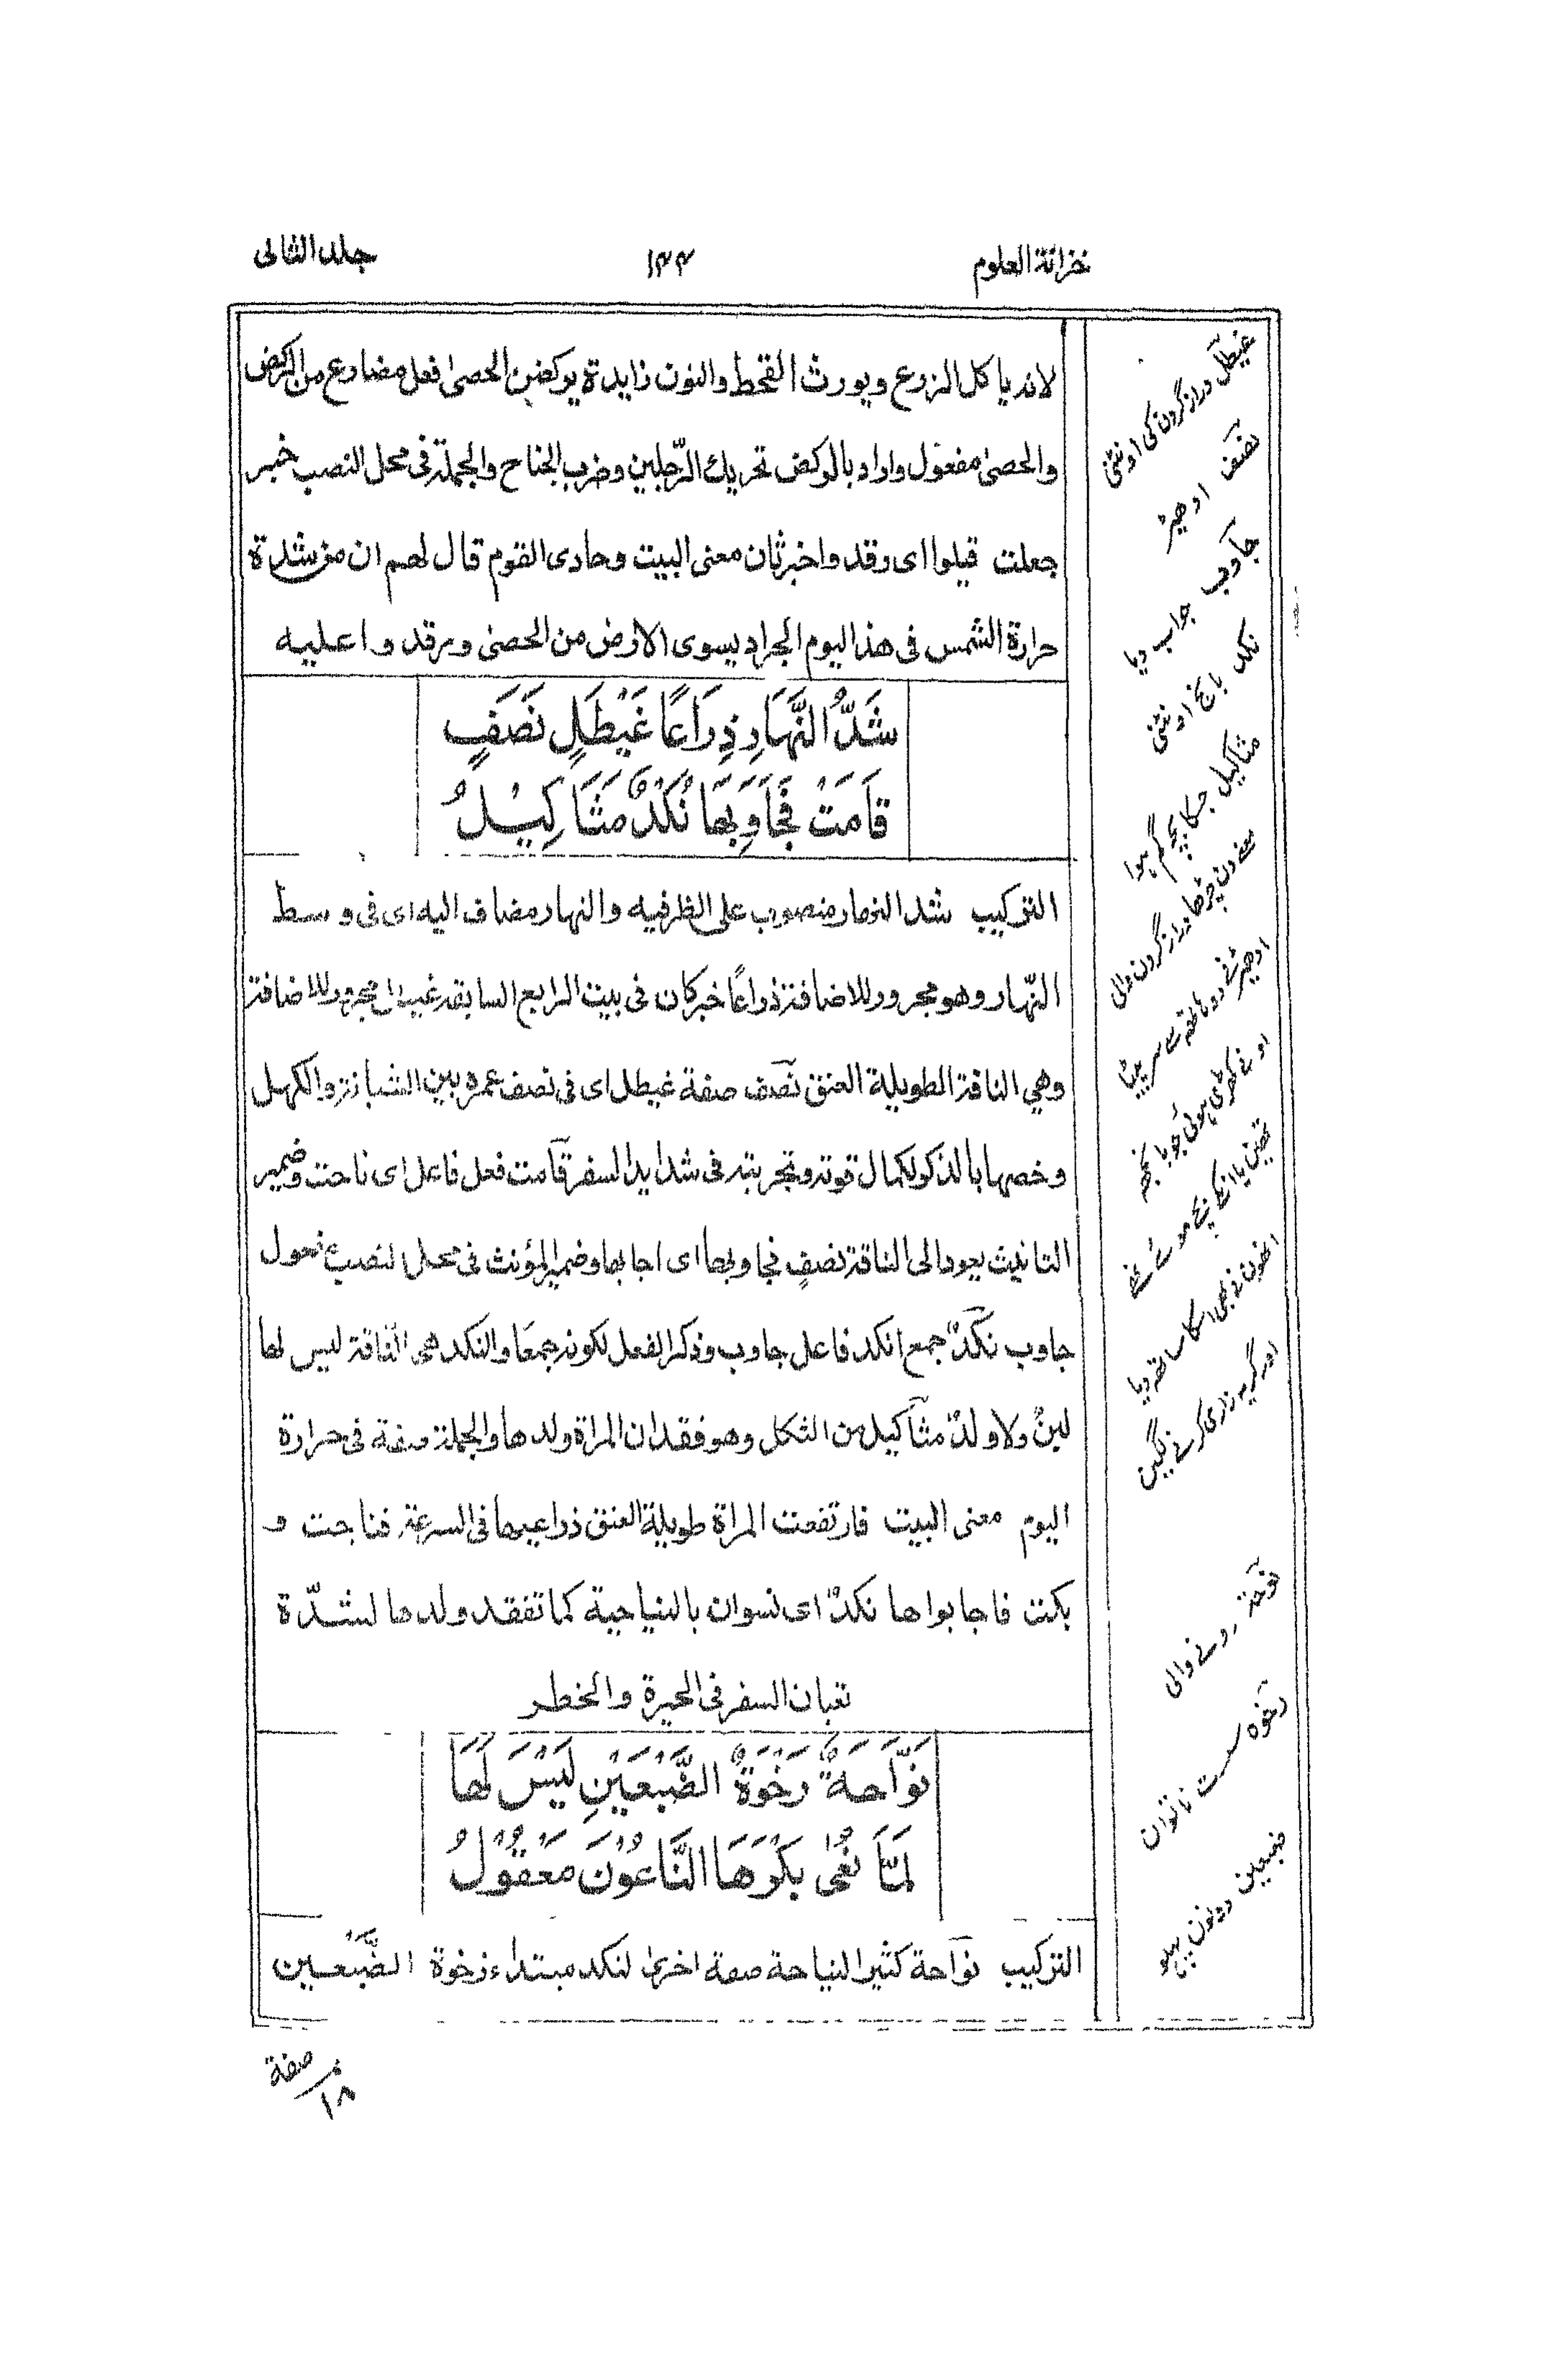 خزانة العلوم ۱۳۳ جلد الثانى
لانه ياكل الزرع ويورث القحط والنون زايدة يركضن الحصىٰ فعل مضارع من الركض
والحصىٰ مفعول واراد بالركض تحريك الرّجلين وضرب الجناح والجملة فى محل النصب خبر
جعلت قيلوا اى رقد واخبرثان معنى البيت وحادى القوم قال لهم ان من شدة
حرارة الشمس فى هذا اليوم الجراد يسوى الارض من الحصىٰ ويرقد وا عليه
شَدُّ النَّهَارِ ذِرَاعًا غَيْطَلٍ نَصَفٍ
قَامَتْ فَجَاوَبَهَا نُكْدٌ مَثَاكِيْلُ
التركيب شد النهار منصوب على الظرفيه والنهار مضاف اليه اى فى وسط
النّهار وهو مجرور للاضافة ذراعًا خبر كان فى بيت الرابع السابقه غيطل مجرور للاضافة
وهي الناقة الطويلة العنق نصف صفة غيطل اى فى نصف عمره بين الشبانة والكهل
وخصها بالذكر لكمال قوته وتجربته فى شدايد السفر قامت فعل فاعل اى ناحت وضمير
التانيث يعود الى الناقة نصفٍ فجاوبها اى اجابها وضمير المؤنث فى محل النصب مفعول
جاوب نكدٌ جمع انكد فاعل جاوب وذكر الفعل لكونه جمعًا والنكد هى الناقة ليس لها
لبنٌ ولا ولدٌ مثاكيل من الثكل وهو فقدان المراة ولدها والجملة صفة فى حرارة
اليوم معنى البيت فارتفعت المراة طويلة العنق ذراعيها فى السرعة فناحت و
بكت فاجابوا ها نكدٌ اى نسوان بالنياحية كما تفقد ولدها لشدّة
تعبان السفر فى الحيرة والخطر
نَوَّاحَةٌ رَخْوَةُ الضَّبْعَيْنِ لَيْسَ لَهَا
لَمَّا نَعٰى بِكْرَهَا النَّاعُوْنَ مَعْقُوْلُ
التركيب نوّاحة كثير النياحة صفة اخرىٰ لنكد مبتداء رخوة الضَّبْعَين
غيطل دراز گردن کی اونٹنی
نصف ادھیڑ
جاوب جواب دیا
نکد بانج اونٹنی
مثاکیل جسکا بچہ گم ہوا
یعنے دن چڑھا دراز گردن والی
ادھیڑ نے دو ہاتھ سے سر پیٹا
اور کھڑی ہوئی جو بانجھ
تھین یا انکے بچے موئے تھے
انھون نے بھی اسکا ساتھ دیا
اور گریہ زاری کرنے لگین
نوحۃ رونے والی
رخوہ سست ناتوان
ضبعین دونون پہلو
صفة
۱۸